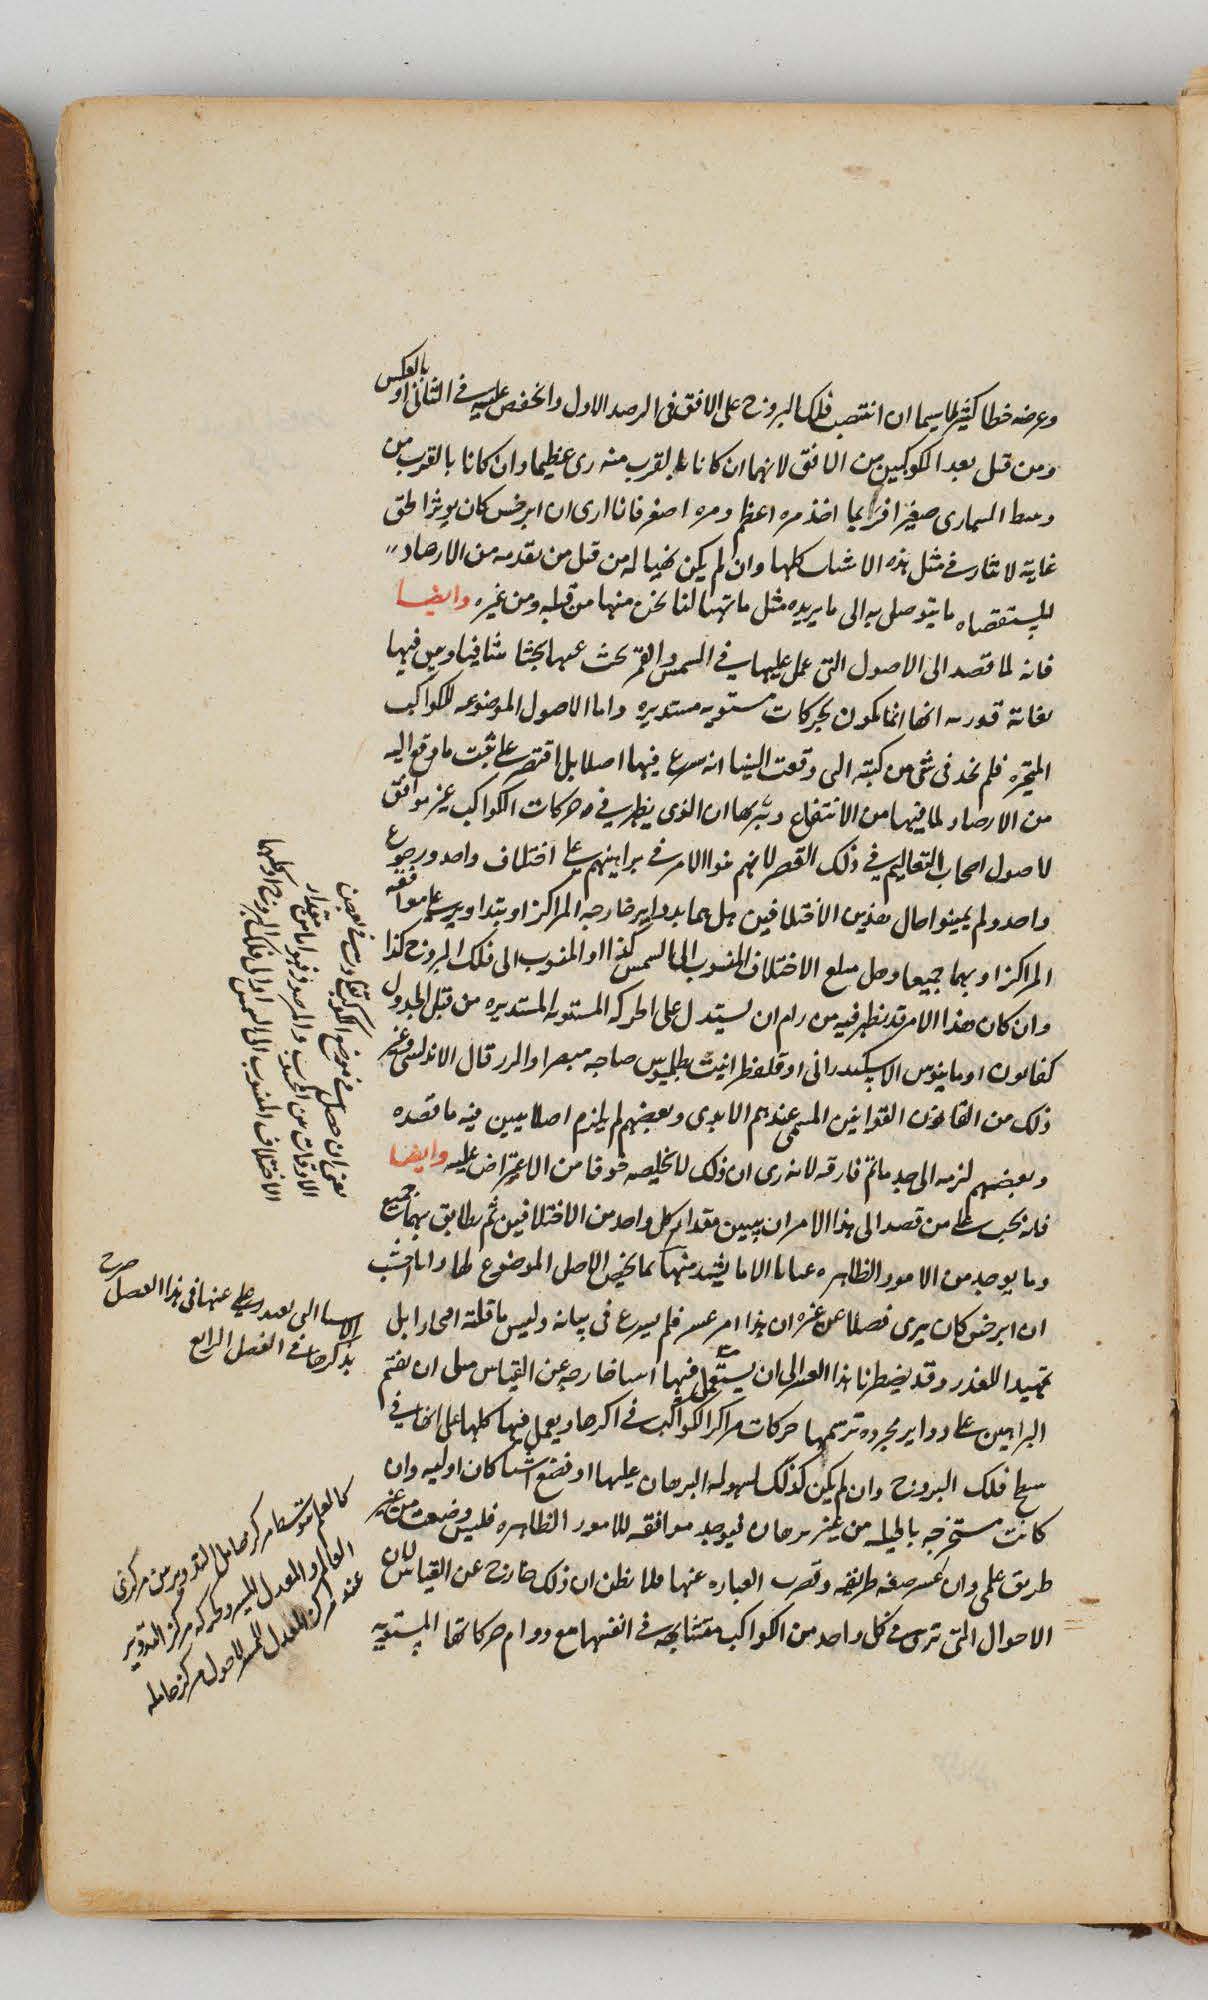 وعرضه خطا كثير لاسيما ان انتصب فلك البروج على الافق في الرصد الاول وانخفض عليه في الثاني او بالعكس
ومن قبل بعد الكوكبين من الافق لانهما ان كانا بالقرب منه رى عظيما وان كانا بالقرب من
وسط السما رى صغيرا فربما اخذ مره اعظم ومره اصغر فانا ارى ان ابرخس كان يوثر الحق
غاية لايثار في مثل هذه الاشيا كلها وان لم يكن تهيا له من قبل من تقدمه من الارصاد
للاستقصاه ما يتوصل به الى ما يريده مثل ما تهيا لنا نحن منها من قبله ومن غيره وايضا
فانه لما قصد الى الاصول التي عمل عليها في الشمس والقمر بحث عنها بحثا شافيا وبين فيها
بغاية قدرته انها انما تكون بحركات مستويه مستديره واما الاصول الموضوعه للكواكب
المتحيره فلم نجد في شى من كتبه التى وقعت الينا انه شرع فيها اصلا بل اقتصر على ثبت ما وقع اليه
من الارصاد لما فيها من الانتفاع وتبرها ان الذى يظهر في حركات الكواكب غير موافق
لاصول اصحاب التعاليم في ذلك العصر لانهم بنوا الامر في براهينهم على اختلاف واحد ورجوع
واحد ولم يبينوا حال هذين الاختلافين هل هما بدواير خارجه المراكز او بتداوير على موافقه
المراكز او بهما جميعا وهل مبلغ الاختلاف المنسوب الى الشمس كذا او المنسوب الى فلك البروج كذا
وان كان هذا الامر قد نظر فيه من رام ان يستدل على الحركه المستويه المستديره من قبل الجدول
ذلك من القانون القوانين المسمى عندهم الابدى وبعضهم لم يلزم اصلا يبين فيه ما قصده
وبعضهم لزمه الى حد ما ثم فارقه لانه رى ان ذلك لا يخلصه خوفا من الاعتراض عليه وايضا
فانه يجب على من قصد الى هذا الامر ان يبين مقدار كل واحد من الاختلافين ثم يطابق بهما جميع
وما يوجد من الامور الظاهره عيانا الاما يشهد منها بما يخص الاصل الموضوع لها وانا احسب
ان ابرخس كان يرى فضلا عن غيره ان هذا امر عسر فلم يشرع في بيانه وليس ما قلته افتخارا بل
تمهيدا للعذر وقد يضطرنا هذا العسر الى ان يستعمل فيها اشيا خارجه عن القياس مثل ان نقيم
البراهين على دواير مجرده ترسمها حركات مراكز الكواكب في اكرها ويعمل فيها كلها على انها في
سطح فلك البروج وان لم يكن كذلك لسهوله البرهان عليها او نضع اشيا كان اوليه وان
كانت مستخرجه بالحيله من غير برهان ليوجد موافقه للامور الظاهره فليس وضعت من غير
طريق علمى وان عسر صفه طريقه وقصرت العباره عنها فلا نظن ان ذلك خارج عن القياس لان
الاحوال التى ترى في كل واحد من الكواكب متشابهه في انفسها مع دوام حركاتها المستويه
يعنى ان حصل في موضع الكوكب تفاوت في بعض
الاوقات بين المحسوب والمرصود فهو اما من مقدار
الاختلاف المنسوب الى الشمس او الى فلك البروج او كليهما
نذكرها في الفصل الرابع
كالعلم بتوسط مركز حامل التدوير بين مركزى
العالم والمعدل للمسير وحركه مركز التدوير
عند مركز المعدل للمسير لا حول مركز حامله